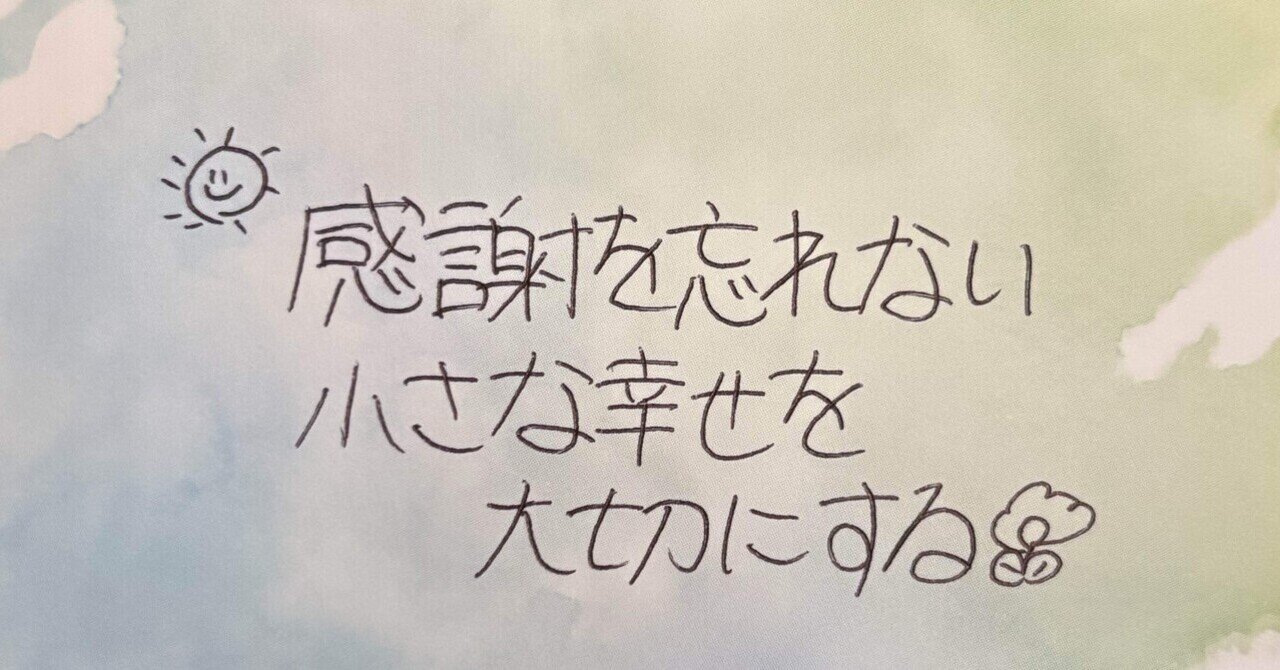 感謝を忘れない
小さな幸せを
大切にする